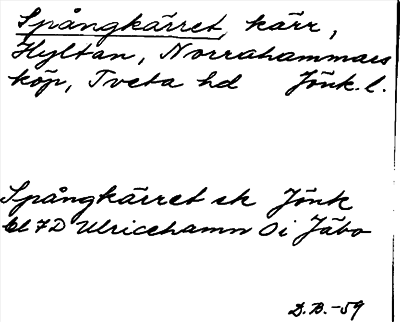 Spångkärret, kärr,
Hyltan, Norrahammars
köp, Tveta hd Jönk. l.
Spångkärret ek Jönk
bl 7D Ulricehamn Oi Jäbo
D.B.-59